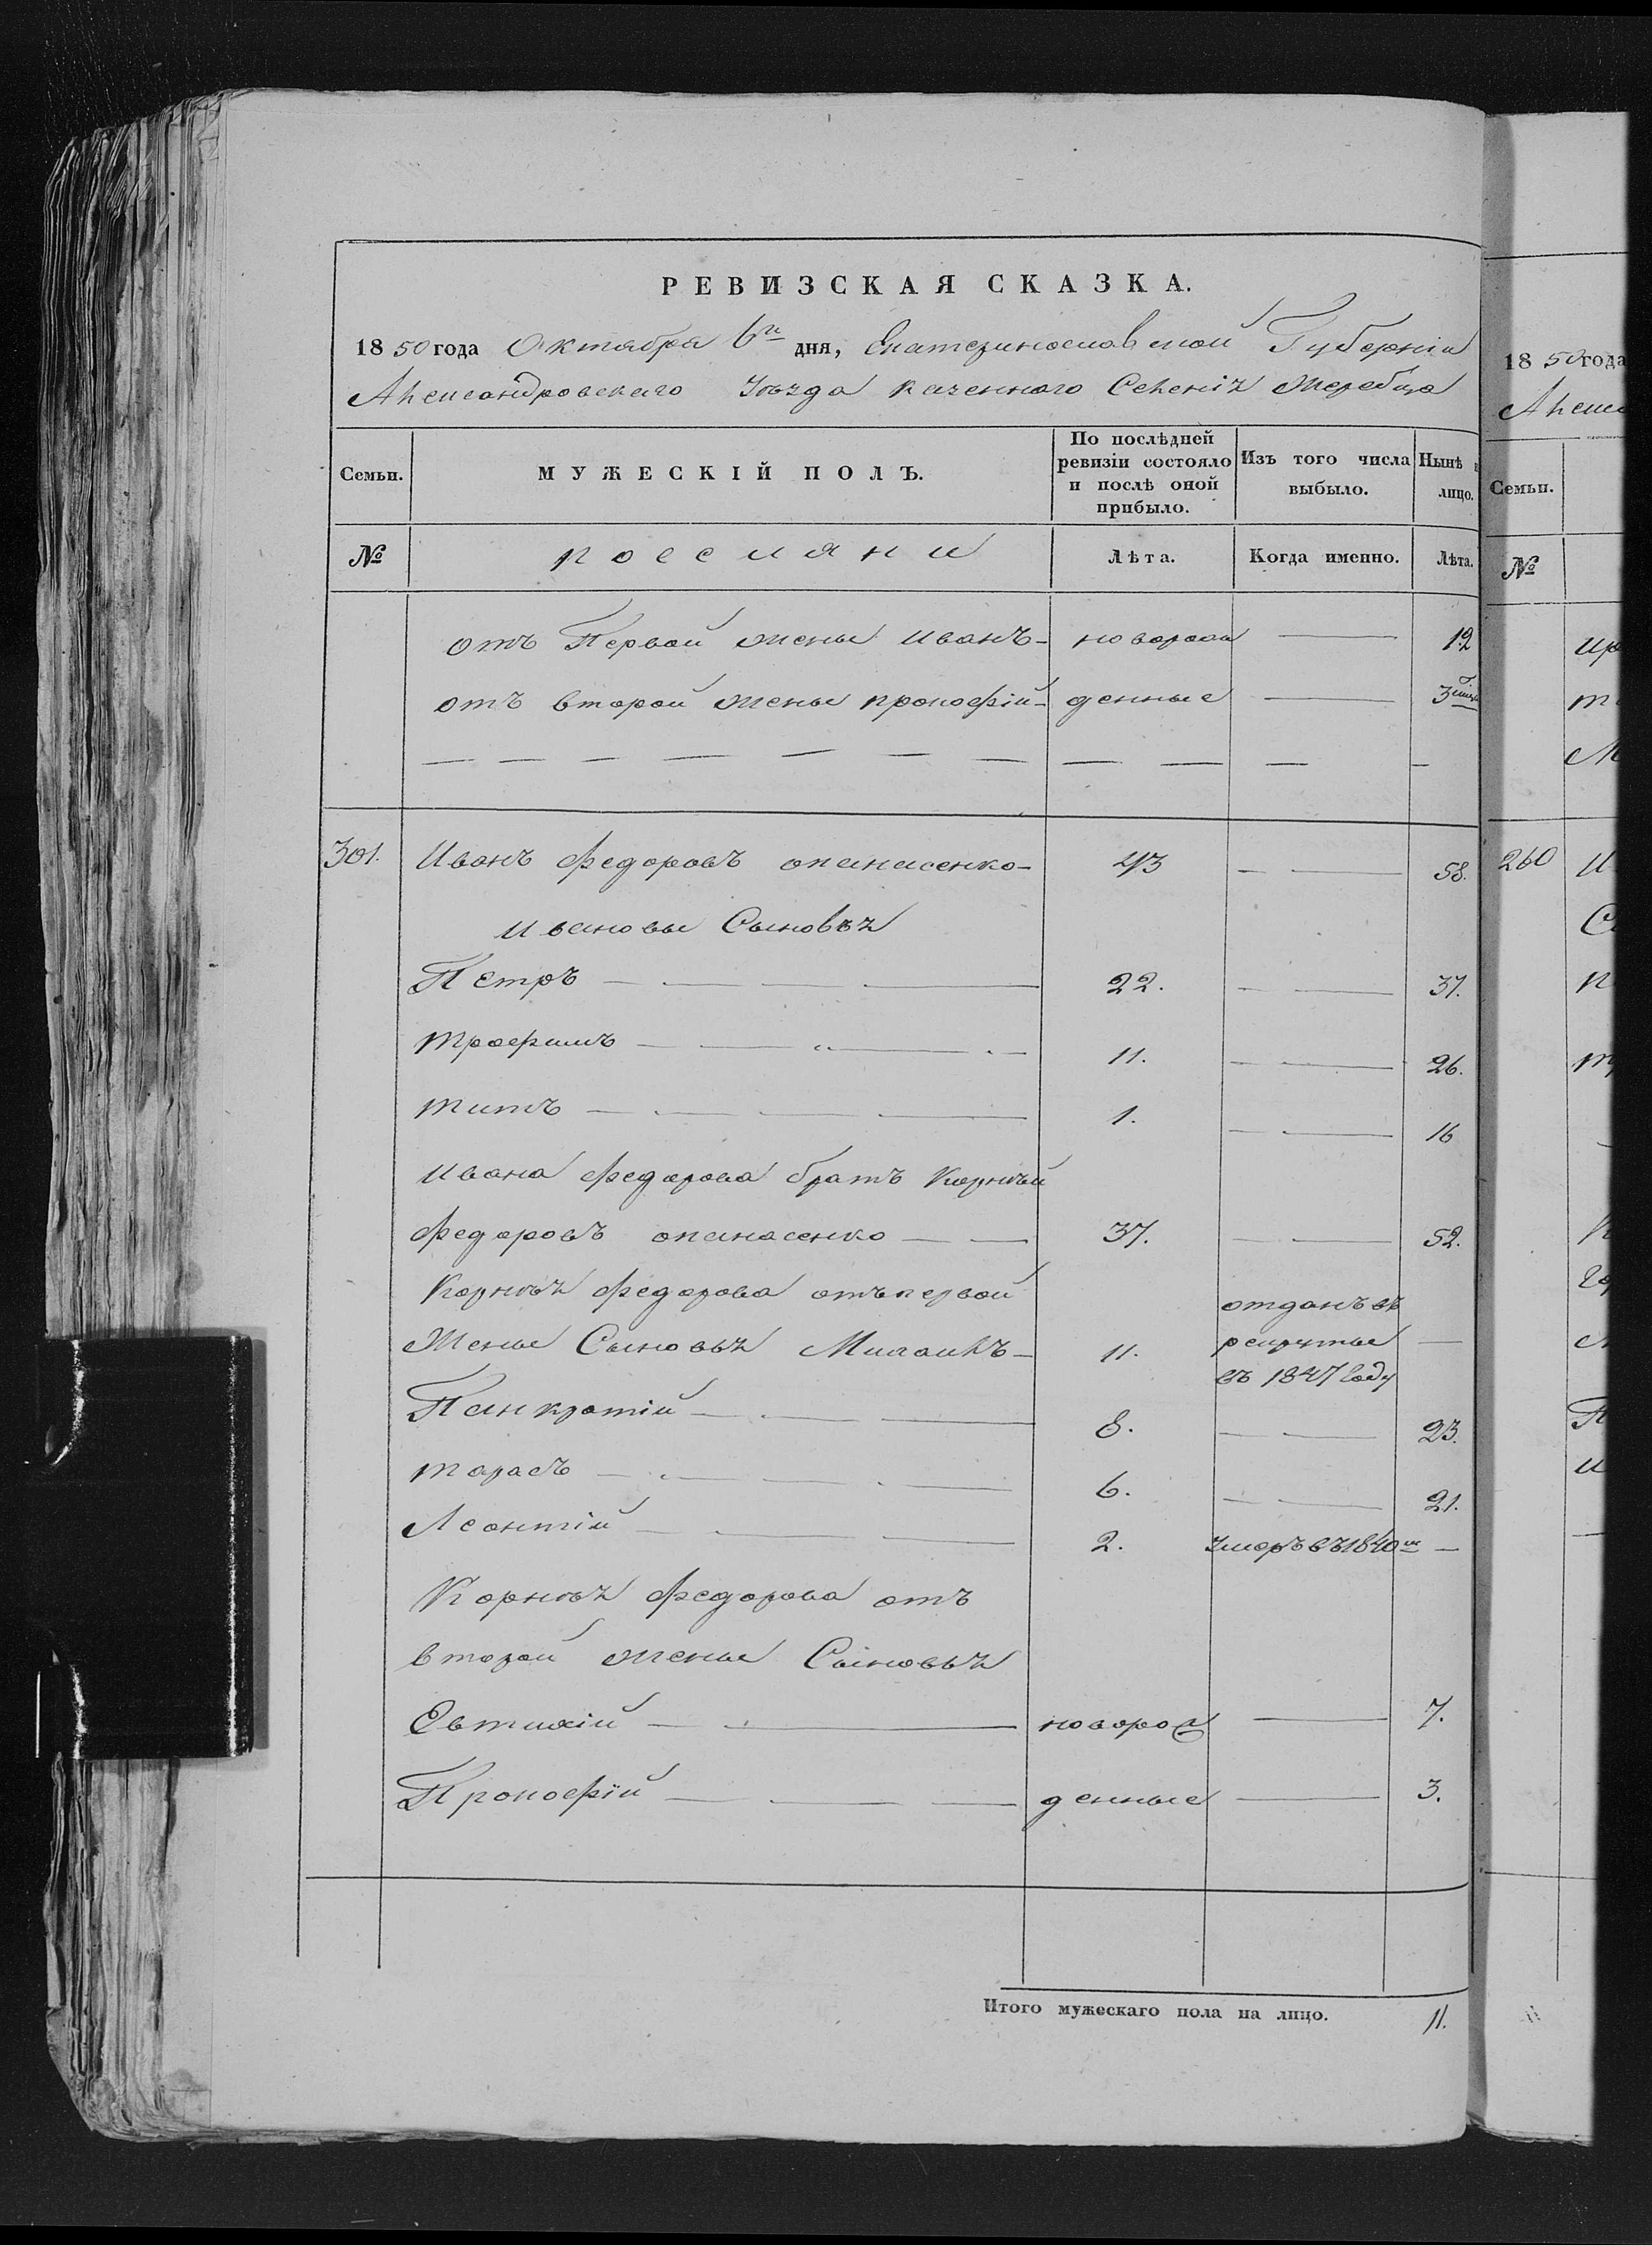 РЕВИЗСКАЯ СКАЗКА.
1850 года Октября 6го дня, Екатеринославской Губерніи
Александровскаго Уѣзда казенного Селенія Жеребца
Семьи.
МУЖЕСКІЙ ПОЛЪ.
По послѣдней ревизіи состояло и послѣ оной прибыло.
Изъ того числа выбыло.
Нынѣ в лицо.
№ поселяни Лѣта. Когда именно. Лѣта.
отъ Первой жены Иванъ - новорож — 12
отъ второй жены прокофій - денные — 3
301. Иванъ Федоровъ опанасенко - 43 — 58.
Ивановы Сыновья
Петръ — 22. — 37.
Трофимъ — 11. — 26.
Титъ — 1. — 16
Ивана Федорова братъ Корнѣй
Федоровъ опанасенко — 37. — 52.
Корнѣя Федорова отъ первой
Жены Сыновья Михаилъ - 11. отданъ въ рекруты въ 1847 Году —
Панкратій — 8. — 23.
Тарасъ — 6. — 21.
Леонтій — 2. Умеръ въ 1840м —
Корнѣя Федорова отъ
второй жены Сыновья
Евтихій — новорож — 7.
Прокофій — денные — 3.
Итого мужескаго пола на лицо. 11.
18 50 года
Семьи.
№
260